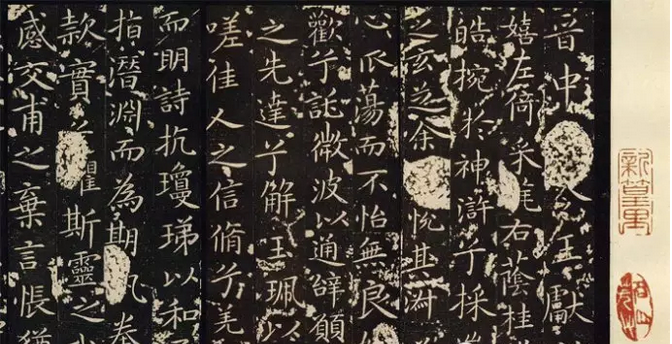 晋中王獻
嬉左倚采旄右蔭桂
皓捥於神滸兮採
之玄芝余悅其淑
心蕩而不怡無良
歡兮託微波以通辭願
之先達兮解玉珮以
嗟佳人之信脩兮羌
而明詩抗瓊珶以和
指潛淵而為期
款實兮懼斯靈之
感交甫之棄言悵猶